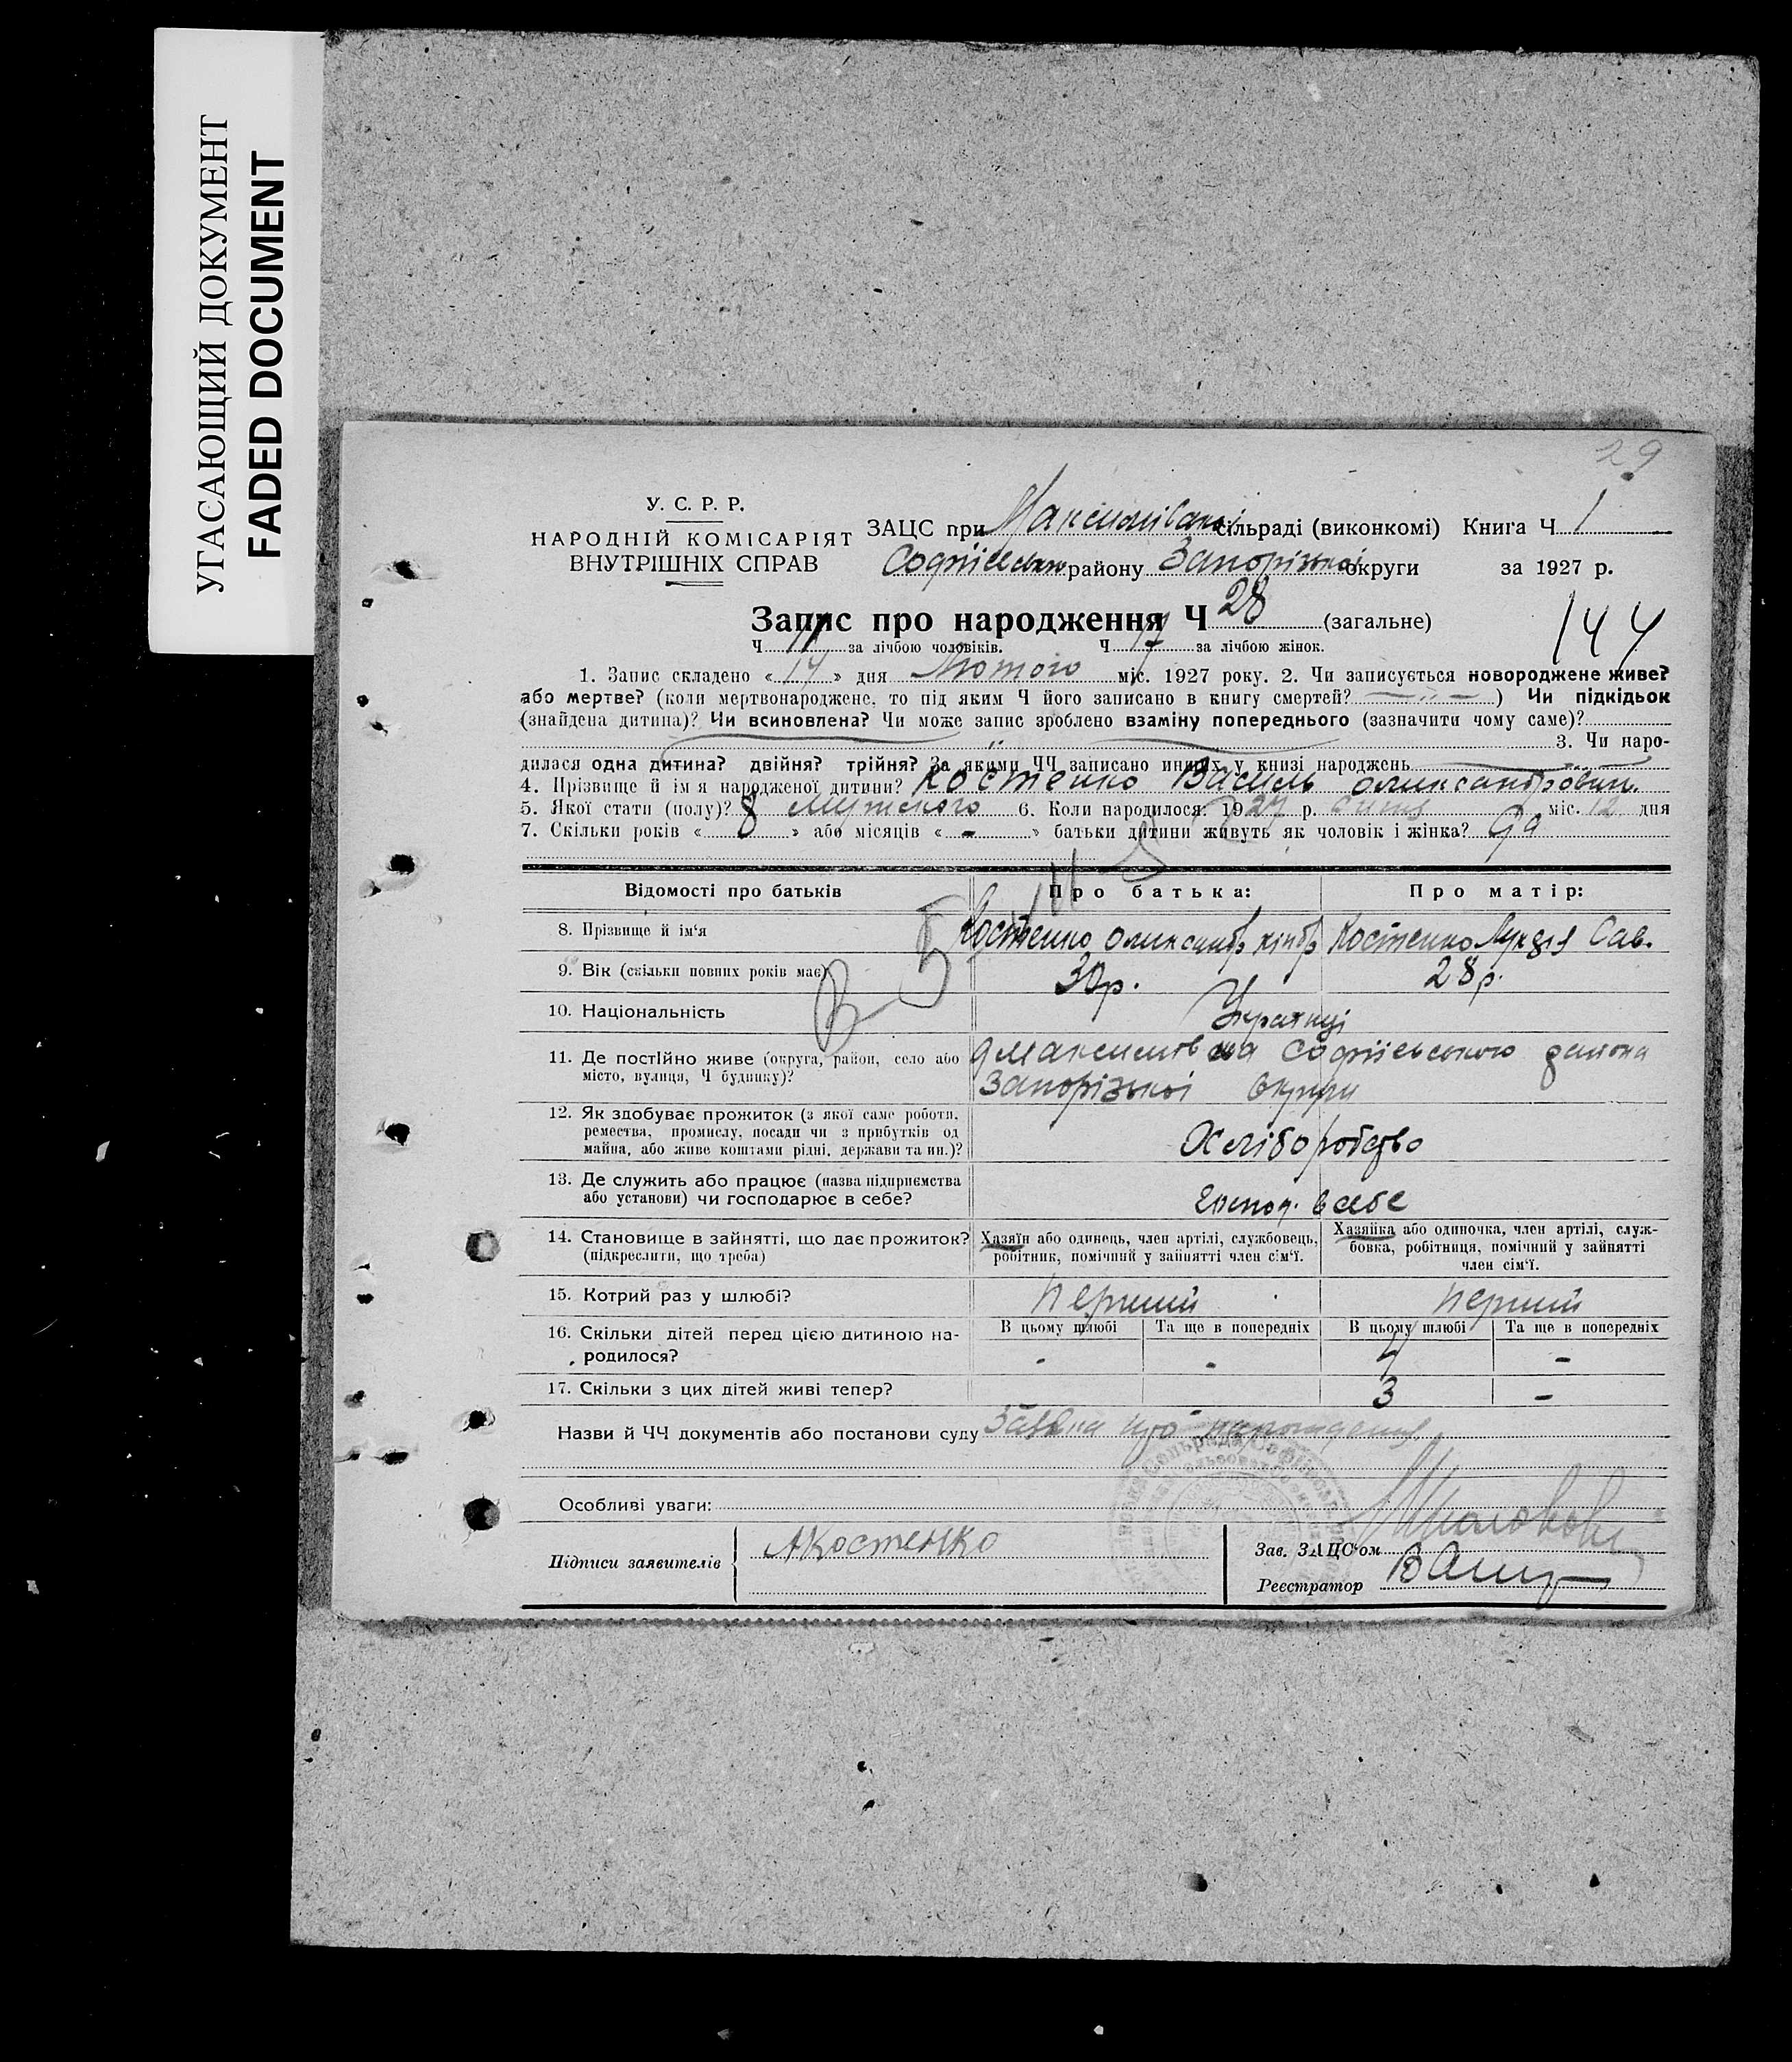 УГАСАЮЩИЙ ДОКУМЕНТ
FADED DOCUMENT
29
У. С. Р. Р.
НАРОДНІЙ КОМІСАРІЯТ
ВНУТРІШНІХ СПРАВ
ЗАЦС при Максимівській сільраді (виконкомі) Книга Ч 1
Софіївського району Запорізької округи за 1927 р.
Запис про народження Ч 28 (загальне)
144
Ч 11 за лічбою чоловіків. Ч 17 за лічбою жінок.
1. Запис складено « 14 » дня Лютого міс. 1927 року. 2. Чи записується новороджене живе?
або мертве? (коли мертвонароджене, то під яким Ч його записано в книгу смертей? — „ — ) Чи підкідьок
(знайдена дитина)? Чи всиновлена? Чи може запис зроблено взаміну попереднього (зазначити чому саме)?
3. Чи наро-
дилася одна дитина? двійня? трійня? За якими ЧЧ записано инших у книзі народжень
4. Прізвище й ім'я народженої дитини? Костенко Василь Олександрович.
5. Якої стати (полу)? 8 Мужского 6. Коли народилося. 1927 р. міс. 12 дня
7. Скільки років « 8 » або місяців « - » батьки дитини живуть як чоловік і жінка? Да
Відомості про батьків
Про батька:
Про матір:
8. Прізвище й ім'я
Костенко Олександр
Костенко Сав.
9. Вік (скільки повних років має)
30р.
28р.
10. Національність
Українці
11. Де постійно живе (округа, район, село або
місто, вулиця, Ч будинку)?
Максимовка Софіївського района
Запорізької округи
12. Як здобуває прожиток (з якої саме роботи,
ремества, промислу, посади чи з прибутків од
майна, або живе коштами рідні, держави та ин.)?
Хліборобство
13. Де служить або працює (назва підприємства
або установи) чи господарює в себе?
Господ. в себе
14. Становище в зайнятті, що дає прожиток?
(підкреслити, що треба)
Хазяїн або одинець, член артілі, службовець,
робітник, помічний у зайнятті член сім'ї.
Хазяйка або одиночка, член артілі, служ-
бовка, робітниця, помічний у зайнятті
член сім'ї.
15. Котрий раз у шлюбі?
перший
перший
16. Скільки дітей перед цією дитиною на-
родилося?
В цьому шлюбі
Та ще в попередніх
В цьому шлюбі
Та ще в попередніх
- - 4 -
17. Скільки з цих дітей живі тепер?
3 -
Назви й ЧЧ документів або постанови суду Заявка про нарождения
Особливі уваги:
Підписи заявителів
АКостенко
Зав. ЗАЦС'ом
Реєстратор